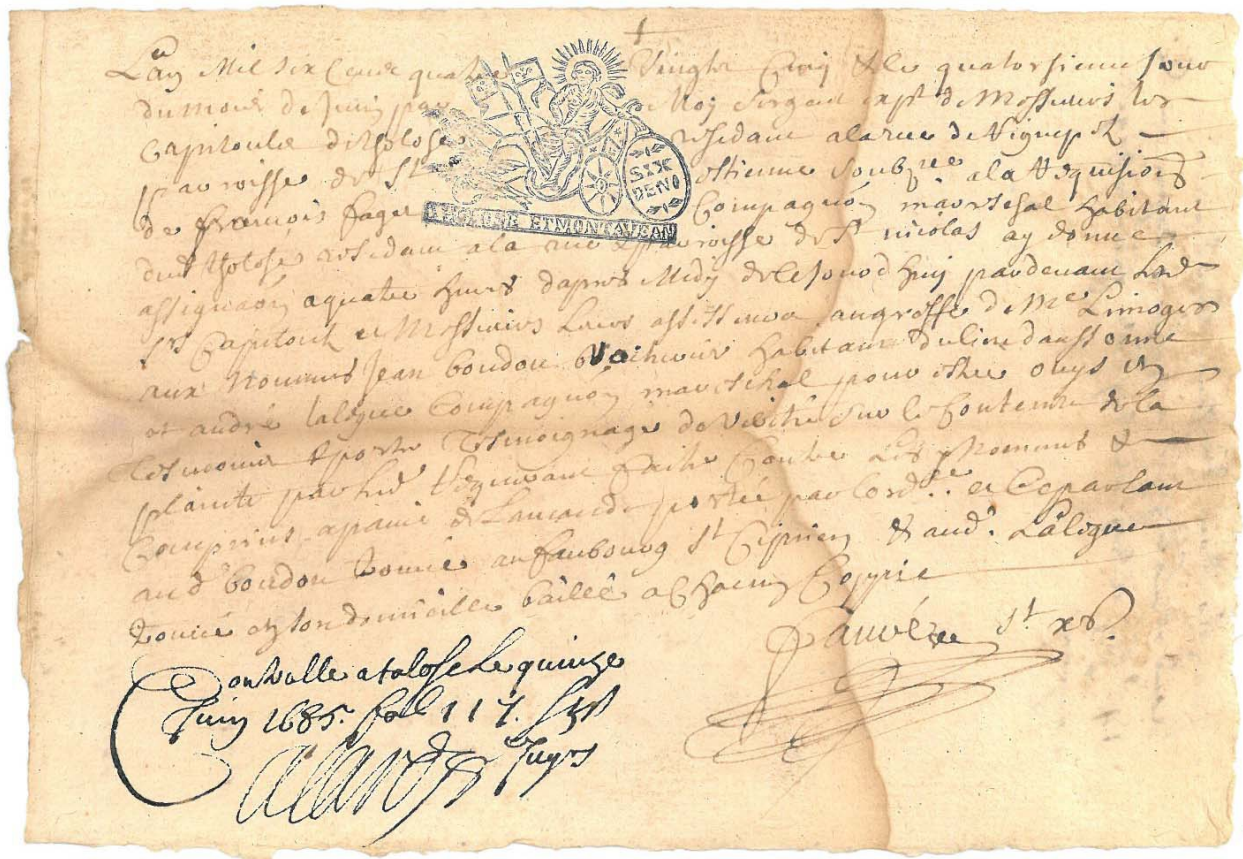 L'an Mil six Cens quatre Vingts Cinq & le quatorsiesme Jour
du mois de Juin par Moy Sergent exp.t de Messieurs les
Capitouls de Tholose residant a la rue de
parroisse de St estienne soubz.ne a la requisi.on
de francois fages Compagnon mareschal habitant
dud tholose residant a la rue & parroisse de St nicolas ay donne
assignaon a quatre heures d'apres Midy de ce Jourdhuy pardevant lesd
srs Capitouls et Messieurs Leurs assesseurs au greffe de Me Limoges
aux Nommes Jean boudou habitant
et andre laligue Compagnon mareschal pour estre ouys en
tesmoins & porter tesmoignage de verité sur le Contenu de la
plainte par led requerant faite Contre Les y Nommes &
Comprins a paine de Lamande portée par lord.ce et Ce parlant
aud boudou trouvé au faubourg St Ciprien & aud. Laligue
trouvé en son domicille baillé a Chacun Coppie
St
SIX
DEN
THOLOSE ET MONTAVBAN
Conrolle a tolose Le quinze
Juin 1685. fol 117.